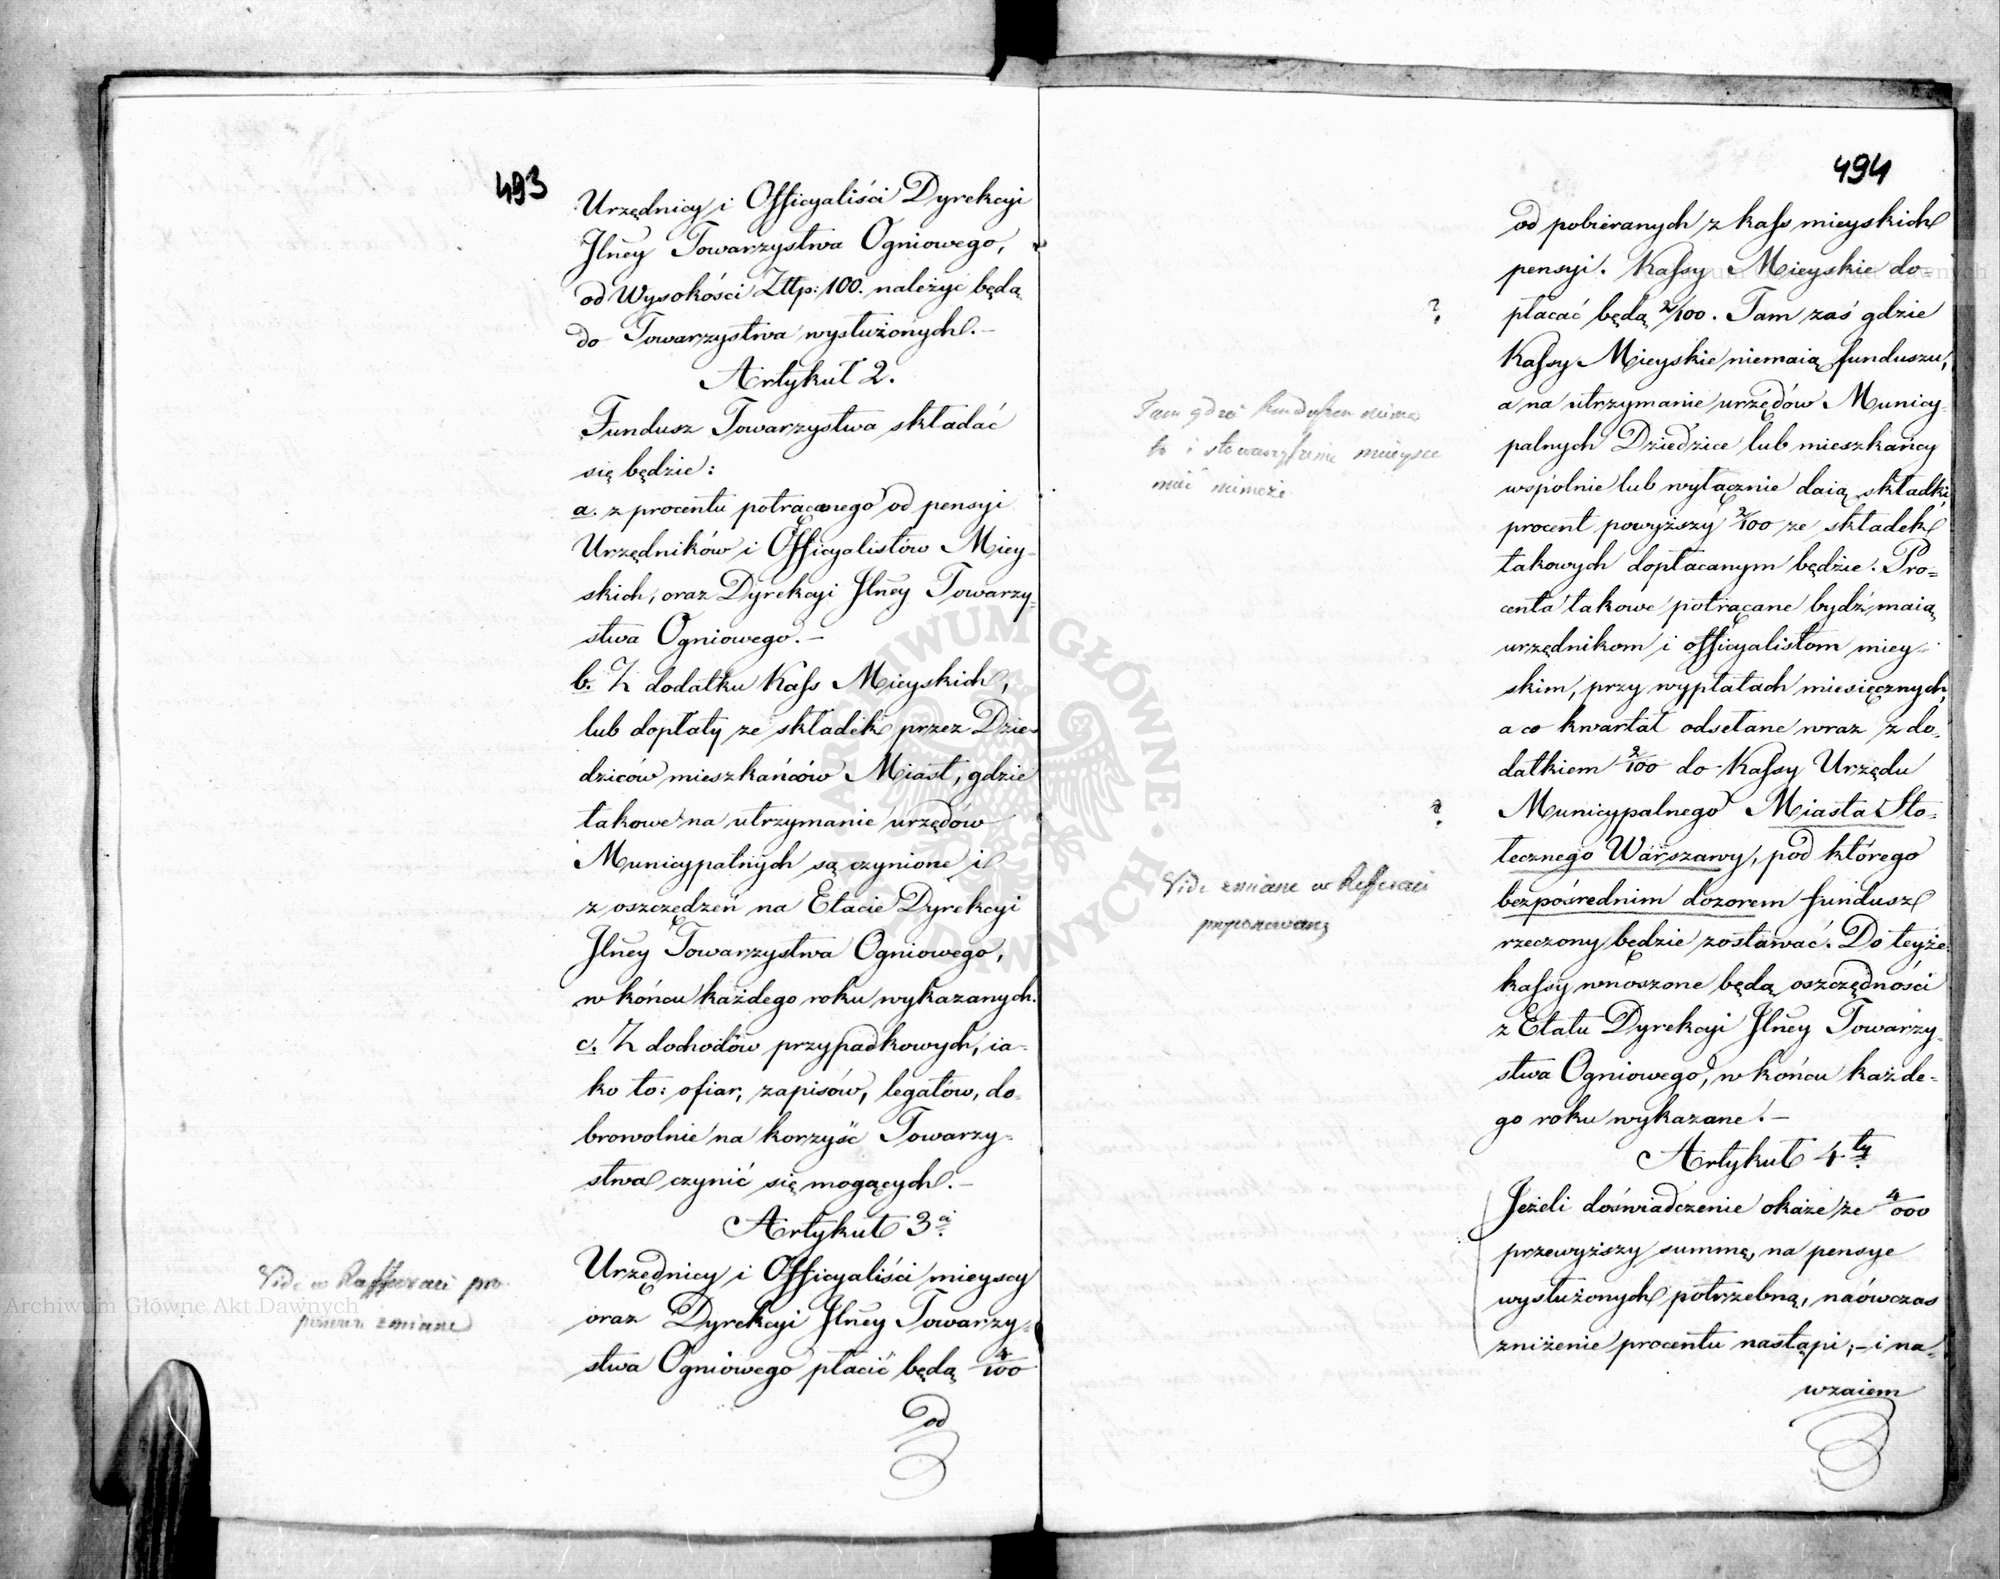 493
Urzędnicy i Officyaliści Dyrekcyi
Jlney Towarzystwa Ogniowego,
od Wysokości Złtp: 100. należyć będą
do Towarzystwa wysłużonych. –
Artykuł 2.
Fundusz Towarzystwa składać
się będzie:
a. z procentu potrącanego od pensyi
Urzędników i Officyalistów Miey-
skich, oraz Dyrekcyi Jlney Towarzy-
stwa Ogniowego. –
b. Z dodatku Kass Mieyskich,
lub dopłaty ze składek przez Dzie-
dziców mieszkańców Miast, gdzie
takowe na utrzymanie urzędów
Municypalnych są czynione i
z oszczędzeń na Etacie Dyrekcyi
Jlney Towarzystwa Ogniowego,
w końcu każdego roku wykazanych.
c. Z dochodów przypadkowych, ia-
ko to: ofiar, zapisów, legatów, do-
browolnie na korzyść Towarzy-
stwa czynić się mogących. –
Artykuł 3i
Urzędnicy i Officyaliści mieyscy
oraz Dyrekcyi Jlney Towarzy-
stwa Ogniowego płacić będą 4/100
od
Vide w Rapporcie pro-
zmiane
494
od pobieranych z kass mieyskich
pensyi. Kassy Mieyskie do-
płacać będą 2/100. Tam zaś gdzie
Kassy Mieyskie niemaią funduszu,
a na utrzymanie urzędów Municy-
palnych Dziedzice lub mieszkańcy
wspolnie lub wyłącznie daią składki
procent powyższy 2/100 ze składek
takowych dopłacanym będzie. Pro-
centa takowe potrącane bydź maią
urzędnikom i officyalistom miey-
skim, przy wypłatach miesięcznych,
a co kwartał odsełane wraz z do-
datkiem 2/100 do Kassy Urzędu
Municypalnego Miasta Sto-
łecznego Warszawy, pod którego
bezpośrednim dozorem fundusz
rzeczony będzie zostawać. Do teyże
kassy wnoszone będą oszczędności
z Etatu Dyrekcyi Jlney Towarzy-
stwa Ogniowego, w końcu każde-
go roku wykazane. –
Artykuł 4ty
Jeżeli doświadczenie okaże że 4/000
przewyższy summę, na pensye
wysłużonych potrzebną, naówczas
zniżenie procentu nastąpi, – i na-
wzaiem
?
Tam gdzie niema
to i stowarzyszenie mieysca
mieć niemoże
?
Vide zmiane w Rapporcie
proponowaną
Archiwum Główne Akt Dawnych
ARCHIWUM GŁÓWNE AKT DAWNYCH